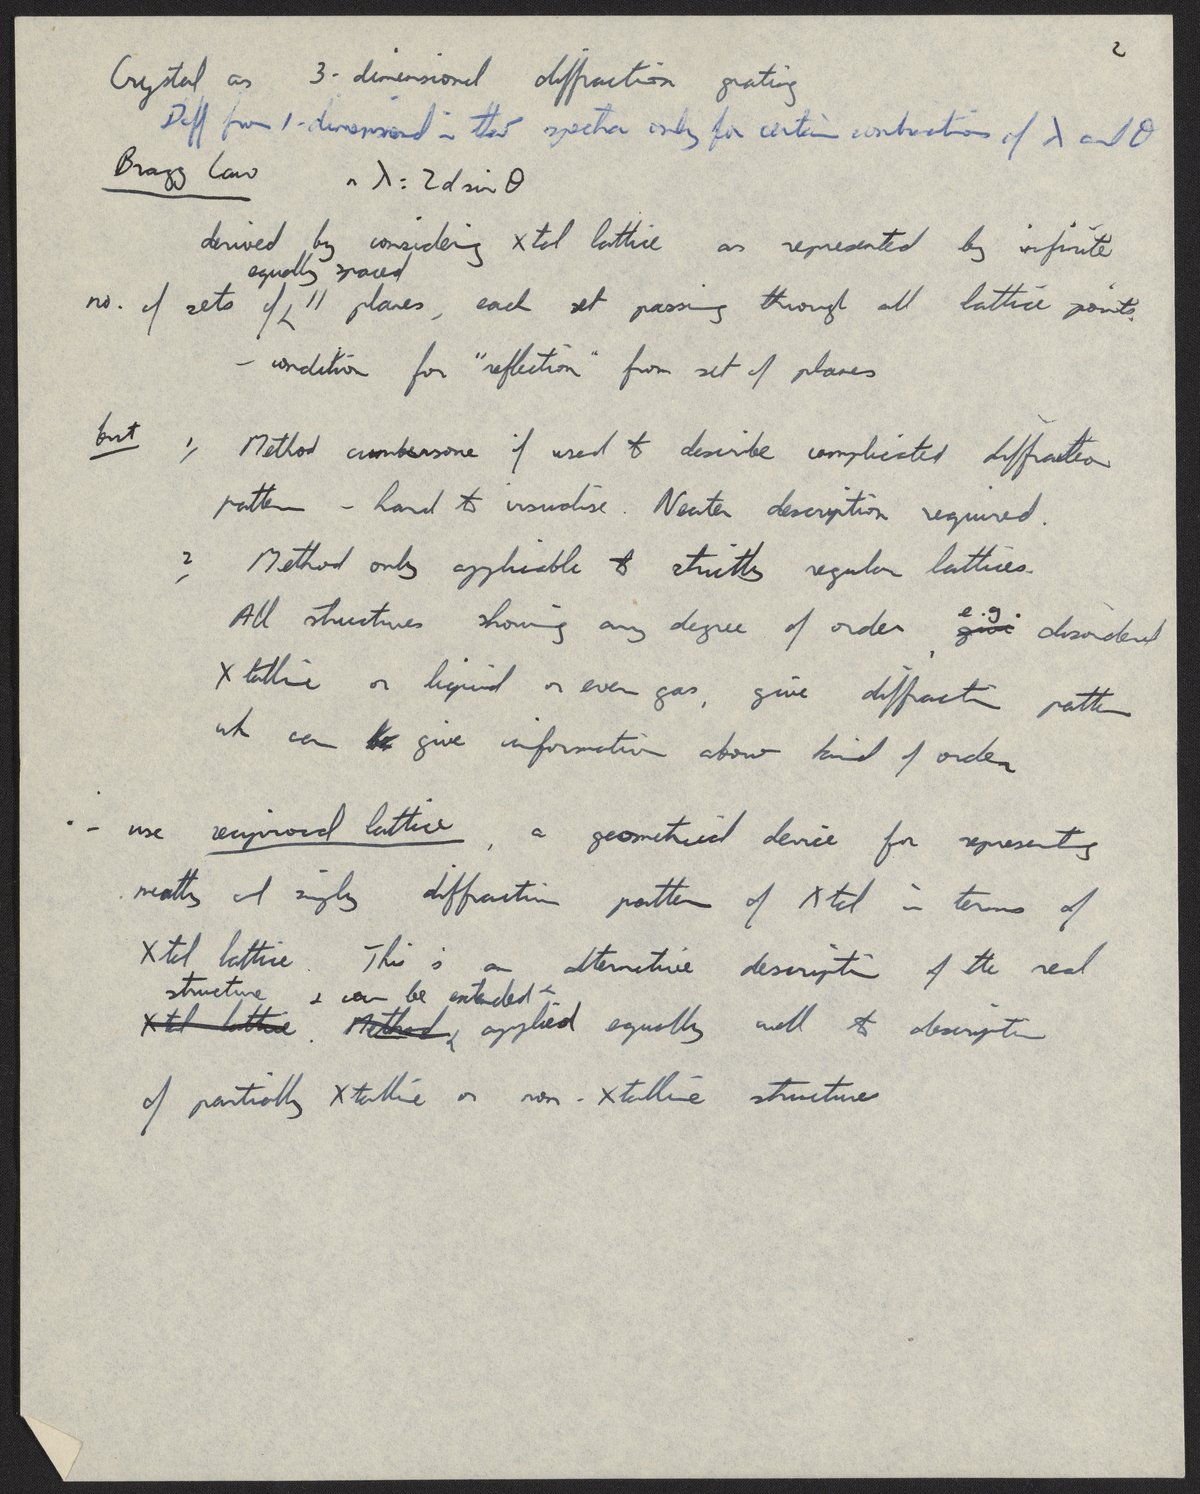 2
Crystal as 3-dimensional diffraction grating
Diff from 1-dimensional in that spectra only for certain combinations of λ and θ
Bragg Law n λ = 2d sin θ
derived by considering Xtal lattice as represented by infinite
equally spaced
no. of sets of || planes, each set passing through all lattice points.
- condition for "reflection" from set of planes
but 1, Method cumbersome if used to describe complicated diffraction
pattern - hard to visualise. Neater description required.
2, Method only applicable to strictly regular lattices.
e.g.
All structures showing any degree of order, give disordered
Xtalline or liquid or even gas, give diffraction pattern
wh can be give information about kind of order
∴ use reciprocal lattice, a geometrical device for representing
neatly & simply diffraction pattern of Xtal in terms of
Xtal lattice. This is an alternative description of the real
structure & can be extended &
Xtal lattice. Method applied equally well to description
of partially Xtalline or non-Xtalline structures